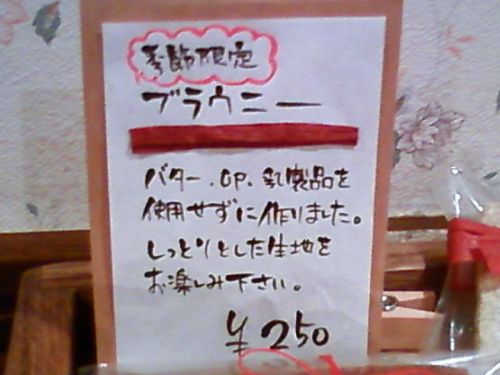 季節限定
ブラウニー
バター.BP.乳製品を
使用せずに作りました。
しっとりとした生地を
お楽しみ下さい。
¥250